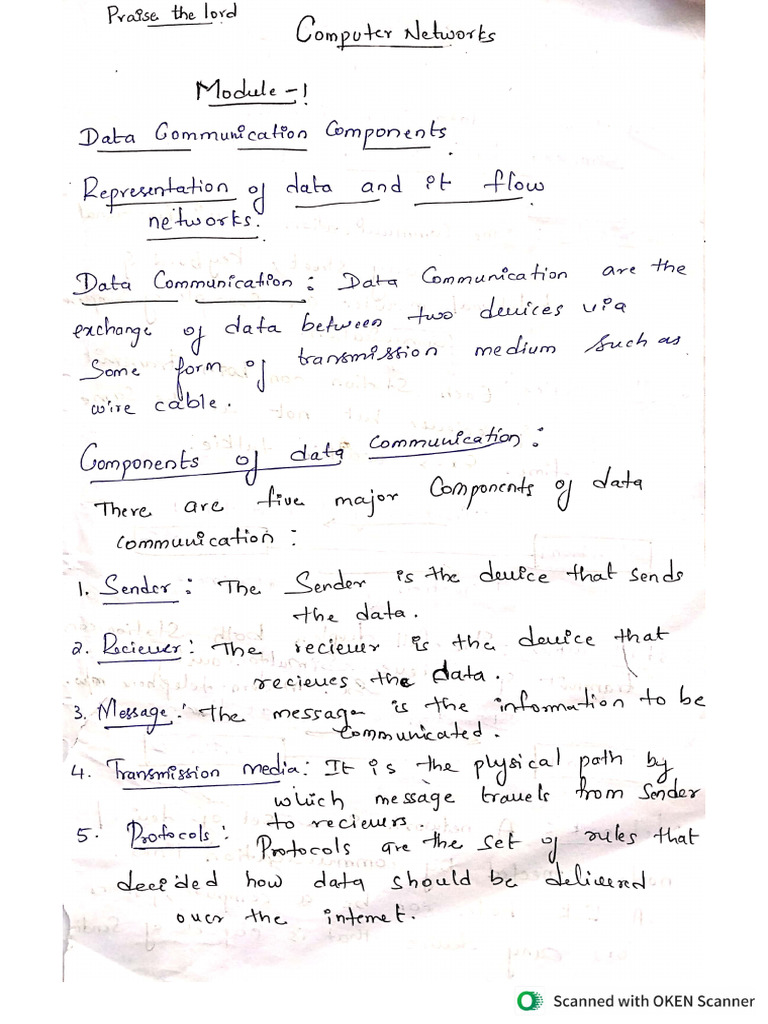 Praise the lord
Computer Networks
Module-1
Data Communication Components.
Representation of data and it flow
networks.
Data Communication: Data Communication are the
exchange of data between two devices via
Some form of transmission medium such as
wire cable.
Components of data communication:
There are five major Components of data
communication:
1. Sender: The Sender is the device that sends
the data.
2. Reciever: The reciever is the device that
recieves the data.
3. Message: The message is the information to be
communicated.
4. Transmission media: It is the physical path by
which message travels from Sender
to recievers.
5. Protocols: Protocols are the set of rules that
decided how data should be delivered
over the internet.
Scanned with OKEN Scanner